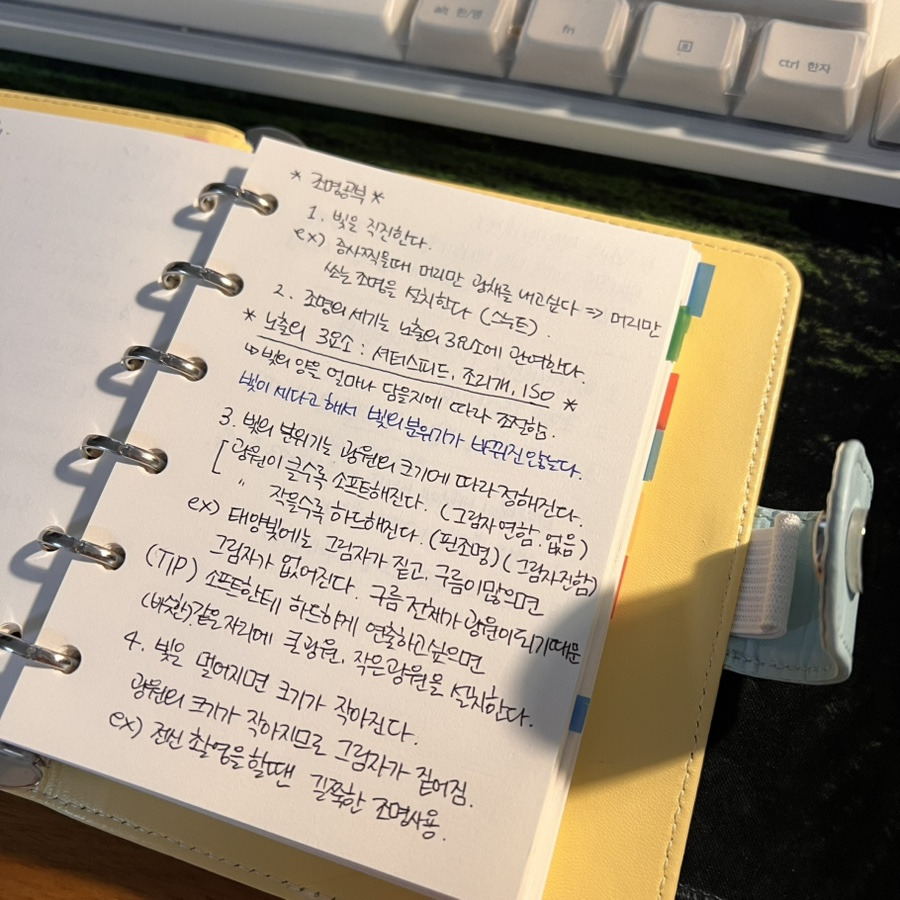 alt 한/영
fn
ctrl 한자
* 조명공부 *
1. 빛을 직진한다.
ex) 증사찍을때 머리만 광채를 내고싶다 => 머리만
쏘는 조명을 설치한다 (스누트).
2. 조명의 세기는 노출의 3요소에 관여한다.
* 노출의 3요소 : 셔터스피드, 조리개, ISO *
↳ 빛의 양을 얼마나 담을지에 따라 조절함.
빛이 세다고 해서 빛의 분위기가 바뀌진 않는다.
3. 빛의 분위기는 광원의 크기에 따라 정해진다.
[ 광원이 클수록 소프트해진다. (그림자 연함. 없음)
" 작을수록 하드해진다. (핀조명) (그림자진함)
ex) 태양빛에는 그림자가 짙고, 구름이많으면
그림자가 없어진다. 구름 전체가 광원이되기때문
(TIP) 소프트한데 하드하게 연출하고싶으면
같은자리에 큰광원, 작은광원을 설치한다.
4. 빛은 멀어지면 크기가 작아진다.
광원의 크기가 작아지므로 그림자가 짙어짐.
ex) 전신 촬영을 할땐 길쭉한 조명사용.